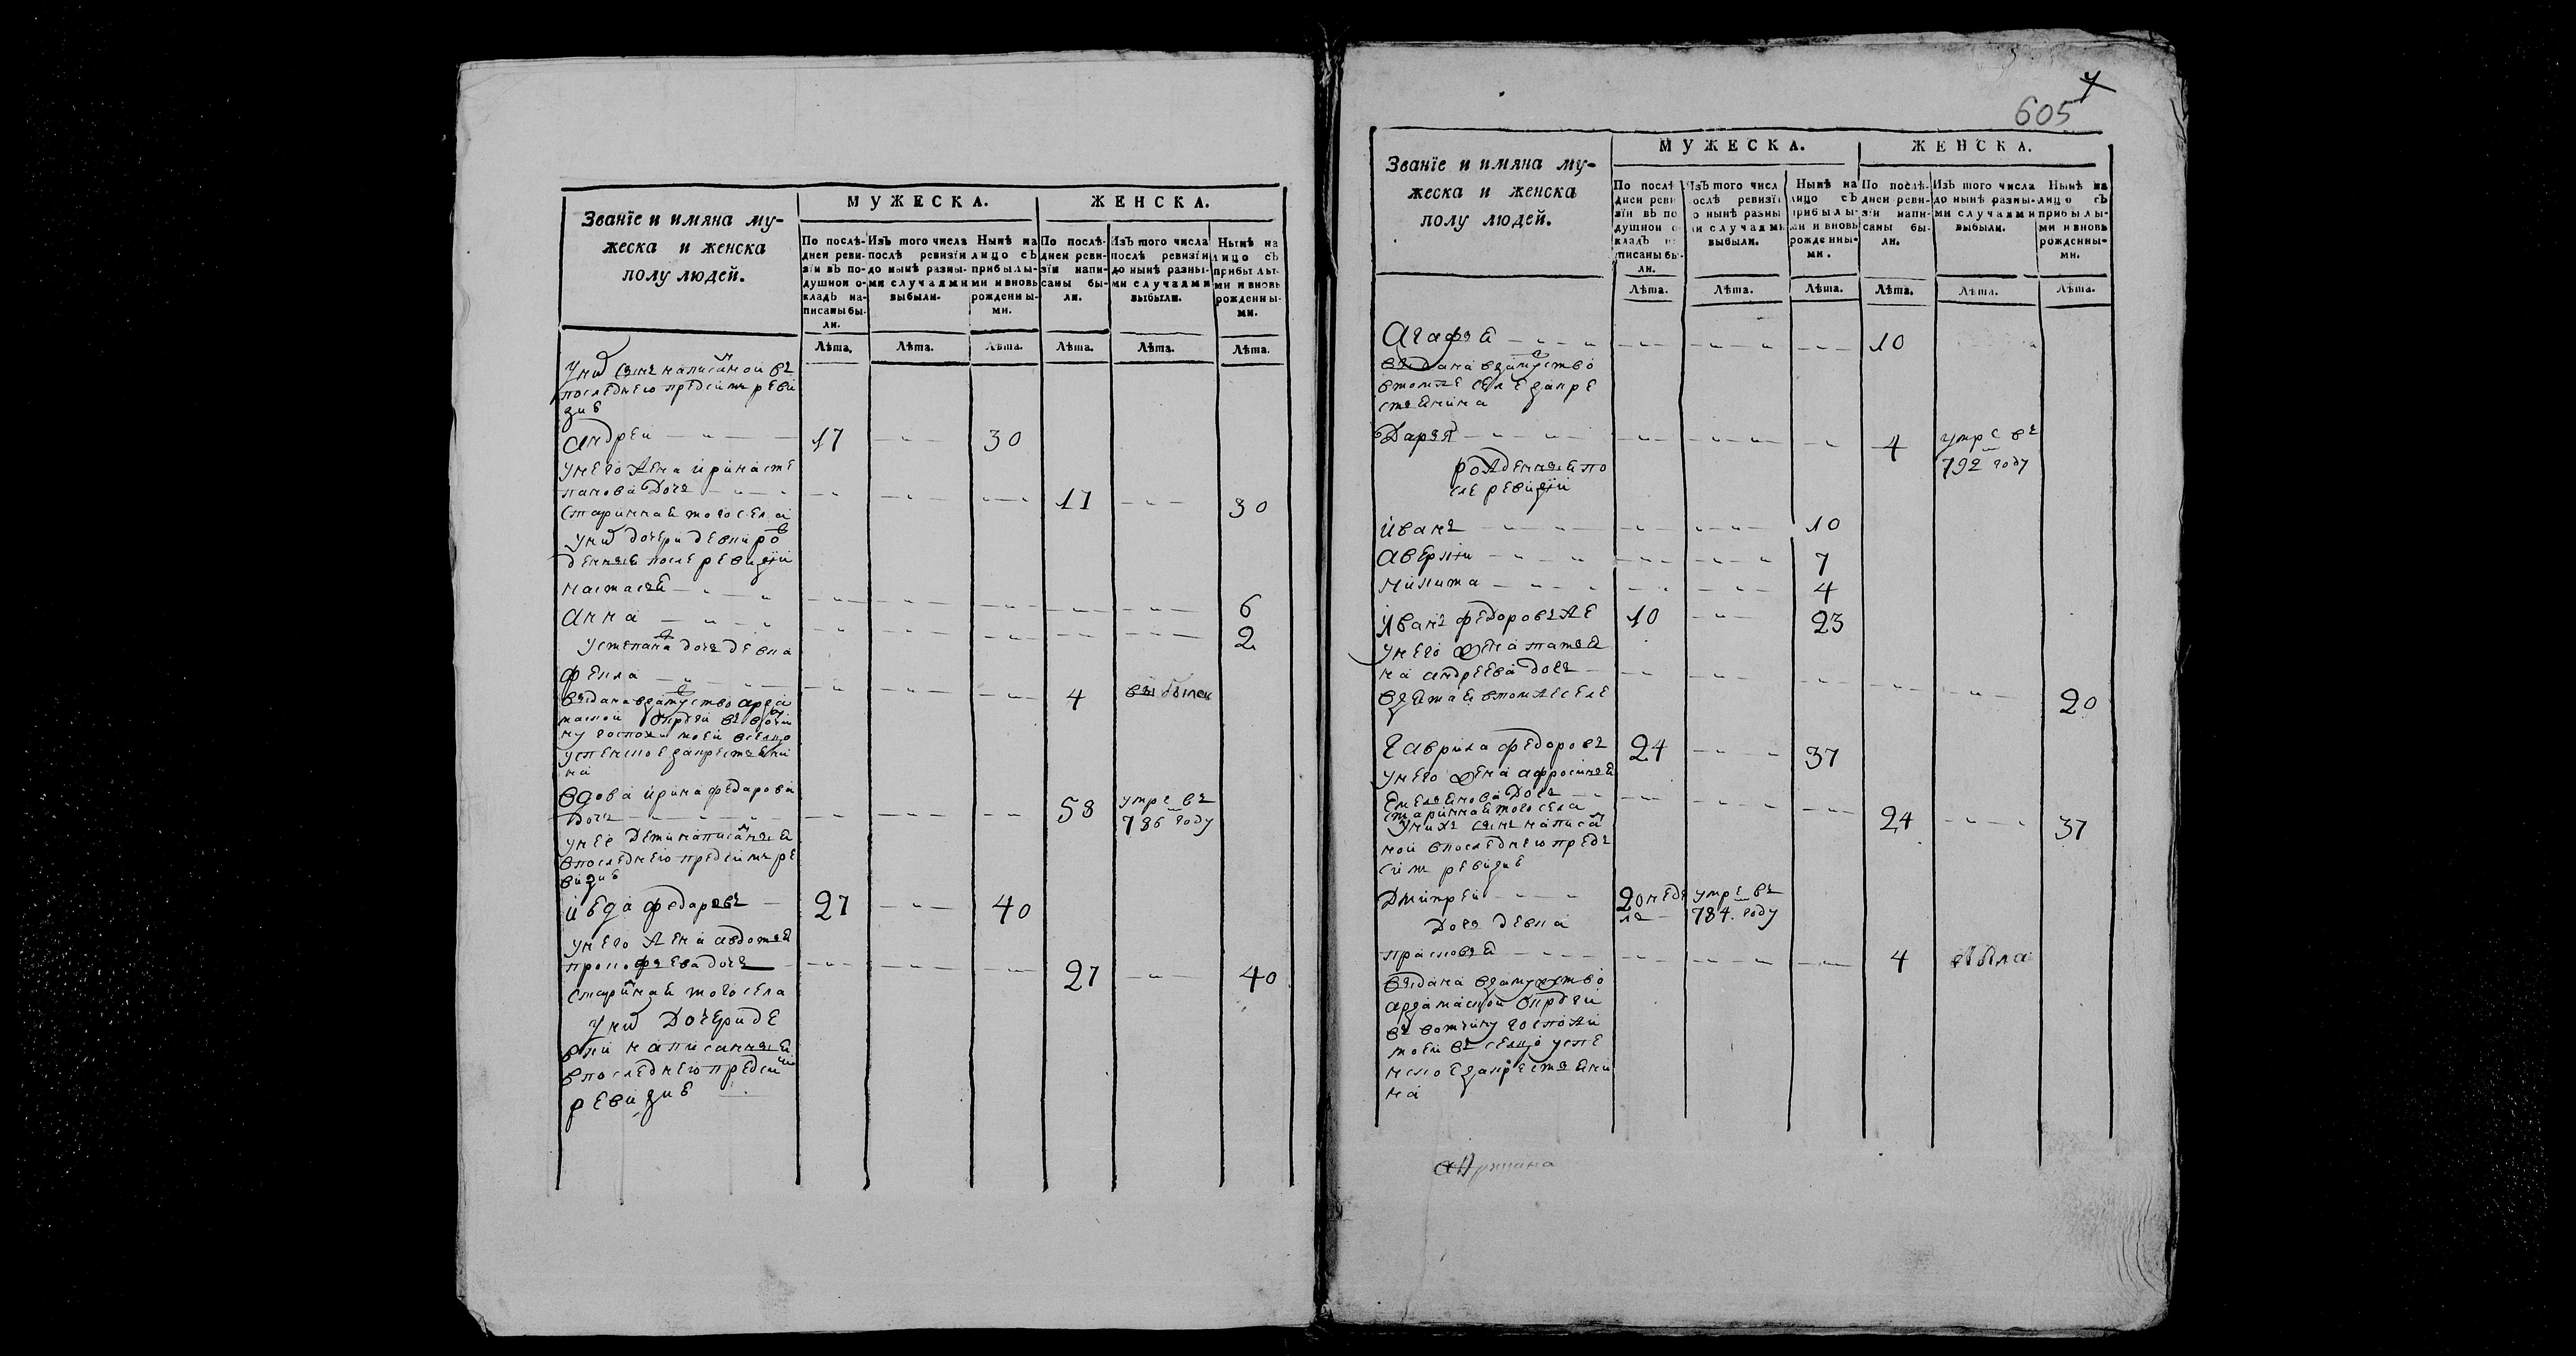 Званїе и имяна му-
жеска и женска
полу людей.
МУЖЕСКА.
ЖЕНСКА.
По послѣ-
дней реви-
зїи въ по-
душной о-
кладъ на-
писаны бы-
ли.
Изъ того числа
послѣ ревизїи
до нынѣ разны-
ми случаями
выбыли.
Нынѣ на
лицо съ
прибылы-
ми и вновь
рожденны-
ми.
По послѣ-
дней реви-
зїи напи-
саны бы-
ли.
Изъ того числа
послѣ ревизїи
до нынѣ разны-
ми случаями
выбыли.
Нынѣ на
лицо съ
прибылы-
ми и вновь
рожденны-
ми.
Лѣта. Лѣта. Лѣта. Лѣта. Лѣта. Лѣта.
у них сынъ написанной въ
последнею предсим реви
зию
андрей 17 30
унего жена ирина сте
панова дочь 17 30
старинная того села
уних дочери девки рож
денныя после ревизїи
настасья 6
анна 2
устепана дочь девка
фекла 4 выбыла
выдана взамуство арза
маской округи въ вотчи
ну госпожи моей вселцо
успенское закрестьяни
на
вдова ирина федарова
дочь 58 умре въ
786 году
унее дети написанныя
впоследнею предсимъ ре
визию
иева федаровъ 27 40
унего жена авдотья
прокофьева дочь 27 40
старинная того села
уних дочери де
вки написанныя
впоследнею предсим
ревизию
605
Званїе и имяна му-
жеска и женска
полу людей.
МУЖЕСКА.
ЖЕНСКА.
По послѣ
дней реви
зїи въ по
душной о
кладъ н
писаны бы-
ли.
Изъ того числ
ослѣ ревизїи
о нынѣ разны
и случаям
выбыли.
Нынѣ на
лицо съ
прибылы-
ми и вновь
рожденны-
ми.
По послѣ-
дней реви-
зїи напи-
саны бы-
ли.
Изъ того числа
до нынѣ разны-
ми случаями
выбыли.
Нынѣ на
лицо съ
прибылы-
ми и вновь
рожденны-
ми.
Лѣта. Лѣта. Лѣта. Лѣта. Лѣта. Лѣта.
Агафья 10
выдана взамуство
втомже селе закре
стьянина
Дарья 4 умре въ
792 году
рожденныя по
сле ревизїи
иванъ 10
аверкїй 7
никита 4
иванъ федоровъ же 10 23
унего жена татья
на андреева дочь 20
взятая втомже селе
гаврила федоровъ 24 37
унего жена афросинья
емельянова дочь 24 37
старинная того села
у нихъ сынъ написан
ной впоследнею предъ
сим ревизию
дмитрей 20 неде умре въ
ль 784 году
дочь девка
прасковья 4 выбыла
выдана взамужство
арзамаской округи
въ вотчину госпожи
моей въ селцо успе
нское закрестьяни
на